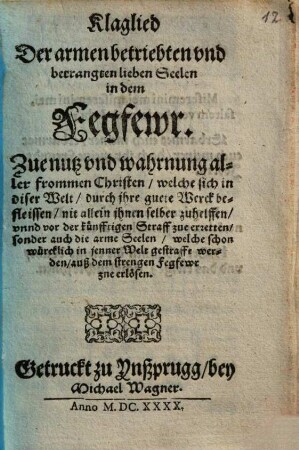 12
Klaglied
Der armen betriebten vnd
betrangten lieben Seelen
in dem
Fegfewr.
Zue nutz vnd wahrnung al-
ler frommen Christen / welche sich in
diser Welt / durch jhre guete Werck be-
fleissen / nit allein jhnen selber zuhelffen /
vnnd vor der künfftigen Straff zue erretten /
sonder auch die arme Seelen / welche schon
würcklich in jenner Welt gestrafft wer-
den / auß dem strengen Fegfewr
zue erlösen.
Getruckt zu Ynßprugg / bey
Michael Wagner.
Anno M. DC. XXXX.